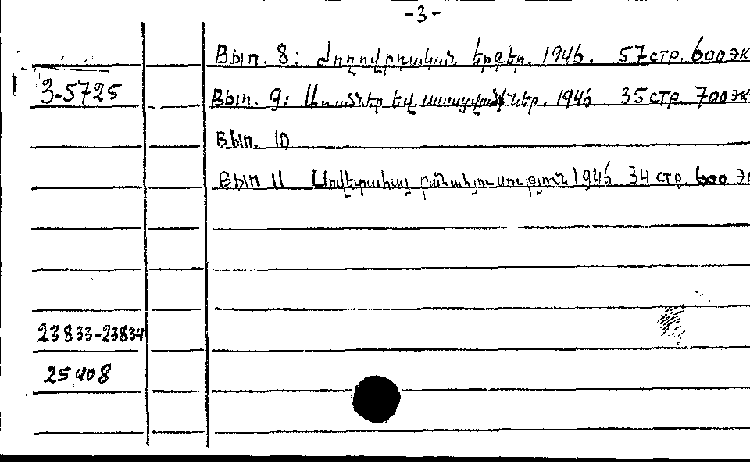 -3-
Вып. 8: Ժողովրդական երգեր. 1946. 57 стр. 600 эк
3-5725
Вып. 9: Առածներ եվ ասացվածքներ. 1946 35 стр. 700 эк
Вып. 10
Вып 11 Սովետահայ բանահյուսություն 1946 34 стр. 600 э
23833-23834
25408